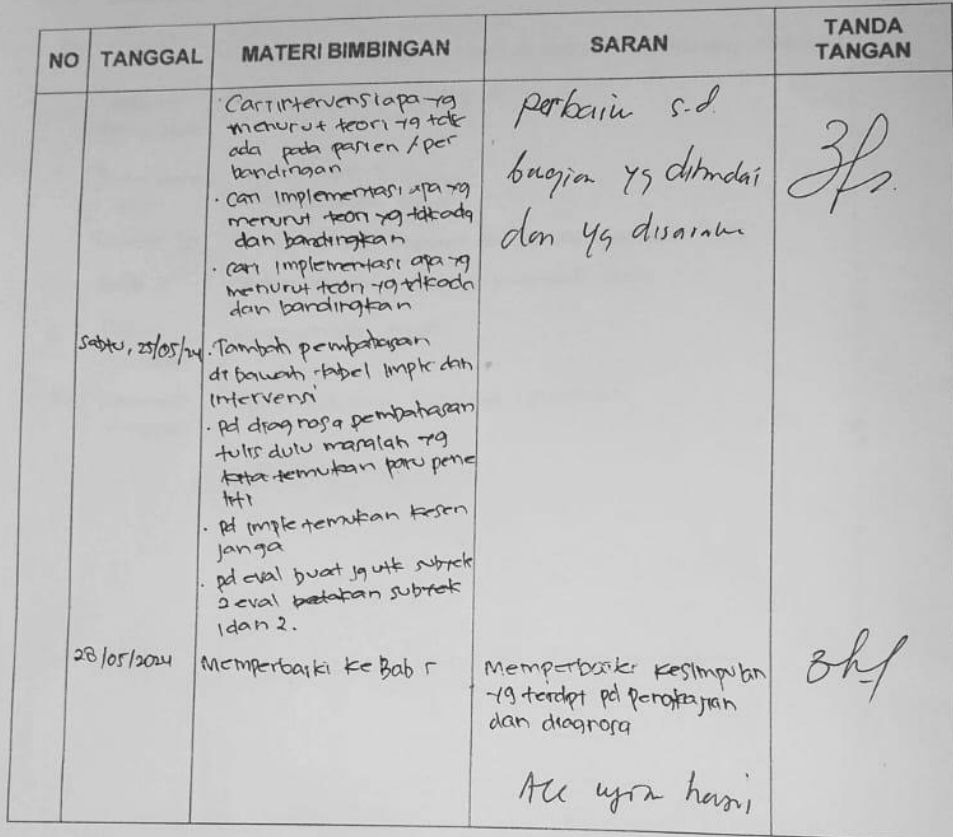 NO TANGGAL MATERI BIMBINGAN SARAN TANDA TANGAN
· Cari intervensi apa yg
menurut teori yg tdk
ada pada pasien / per
bandingan
· cari implementasi apa yg
menurut teori yg tdk ada
dan bandingkan
· cari implementasi apa yg
menurut teori yg tdk ada
dan bandingkan
perbaiki s.d.
bagian yg ditandai
dan yg disarankan
Sabtu, 25/05/24
· Tambah pembahasan
di bawah tabel imple dan
intervensi
· pd diagnosa pembahasan
tulis dulu masalah yg
kita temukan paru pene
liti
· pd imple temukan kesen
janga
· pd eval buat jg utk subyek
2 eval katakan subyek
1 dan 2.
28/05/2024
Memperbaiki ke Bab 5
Memperbaiki kesimpulan
yg terdpt pd pengkajian
dan diagnosa
Acc ujian hasil